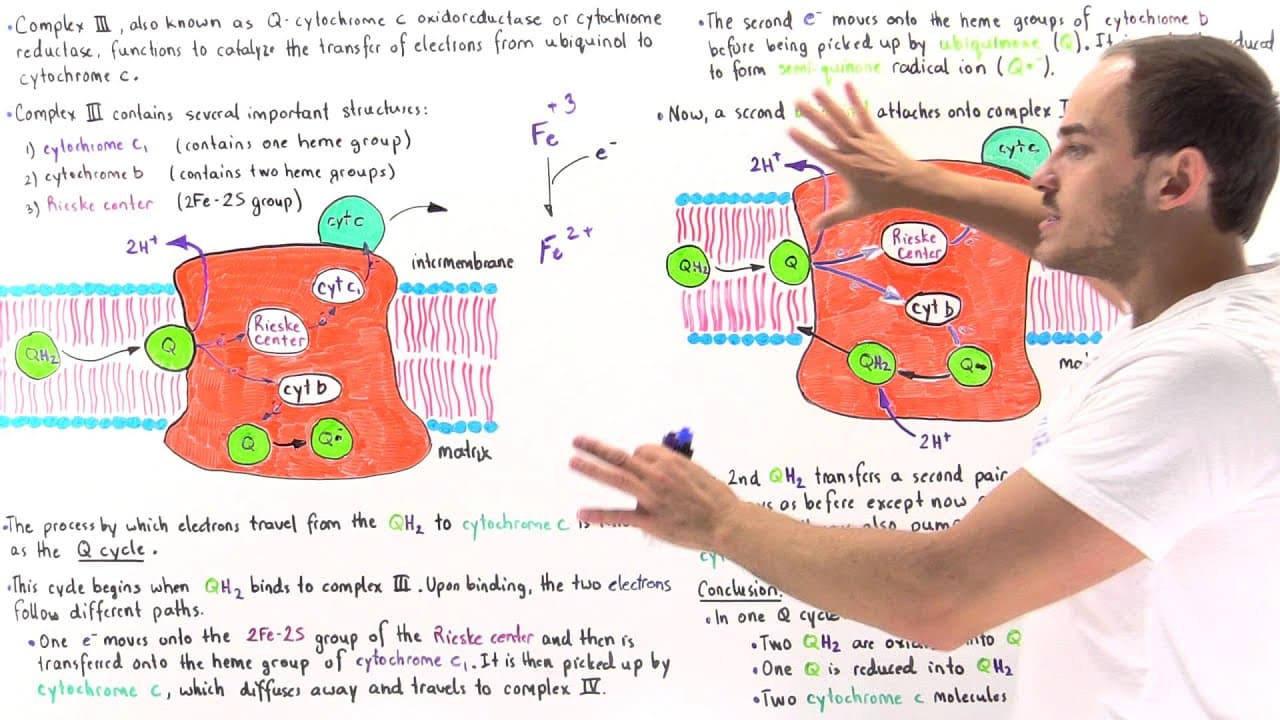 •Complex III, also known as Q-cytochrome c oxidoreductase or cytochrome
reductase, functions to catalyze the transfer of electrons from ubiquinol to
cytochrome c.
•Complex III contains several important structures:
1) cytochrome c1 (contains one heme group)
2) cytochrome b (contains two heme groups)
3) Rieske center (2Fe-2S group)
Fe+3
e-
Fe2+
2H+
cyt c
intermembrane
cyt c1
e-
Rieske
center
e-
QH2
Q
e-
e-
cyt b
e-
Q
Q•-
matrix
•The process by which electrons travel from the QH2 to cytochrome c is
as the Q cycle.
•This cycle begins when QH2 binds to complex III. Upon binding, the two electrons
follow different paths.
•One e- moves onto the 2Fe-2S group of the Rieske center and then is
transferred onto the heme group of cytochrome c1. It is then picked up by
cytochrome c, which diffuses away and travels to complex IV.
•The second e- moves onto the heme groups of cytochrome b
before being picked up by ubiquinone (Q). It
to form semi-quinone radical ion (Q•-).
•Now, a second attaches onto complex
cyt c
2H+
Rieske
Center
QH2
Q
e-
e-
cyt b
e-
QH2
Q•-
2H+
2nd QH2 transfers a second pair
as before except now
also
Conclusion:
•In one Q cycle
•Two QH2 are into Q
•One Q is reduced into QH2
•Two cytochrome c molecules